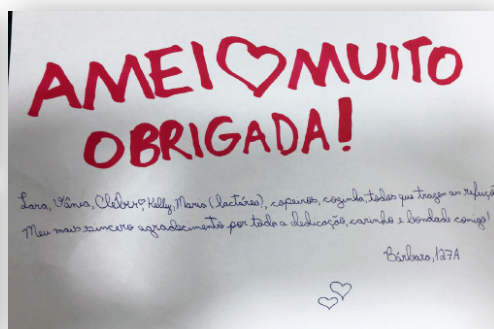 AMEI♡MUITO
OBRIGADA!
Lara, Vânia, Cleber, Kelly, Maria (lactário), copeiros, cozinha, todos que trazem as refeiçõ
Meu mais sincero agradecimento por toda a dedicação, carinho e bondade comigo!
Bárbara, 127A